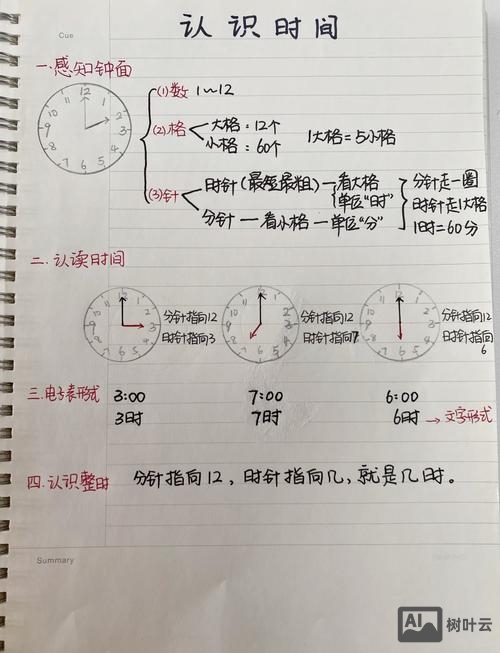 Cue
认识时间
一.感知钟面
12 1 2 3 4 5 6 7 8 9 10 11
(1)数 1~12
(2)格 大格:12个
小格:60个
1大格=5小格
(3)针 时针(最短最粗)—看大格
单位"时"
分针—看小格—单位"分"
分针走一圈
时针走1大格
1时=60分
二.认读时间
分针指向12
时针指向3
分针指向12
时针指向7
分针指向12
时针指向
6
三.电子表形式 3:00 7:00 6:00
3时 7时 6时 → 文字形式
四.认识整时 分针指向12,时针指向几,就是几时。
Summary
AI 树叶云